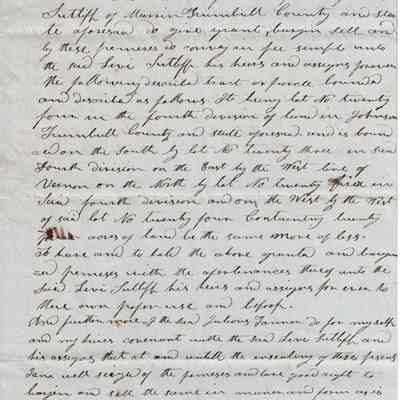 Sutliff of Warren Trumbull County and sta
te aforesaid do give grant, bargin sell and
by these premeses do convay in fee simple unto
the said Levi Sutliff his heirs and assigns forever
the following described tract or parcle bounded
and described as follows. Its being lot No twenty
four in the fourth division of land in Johnson
Trumbull County and state aforesaid and is bound
ed on the South by lot No twenty three in said
fourth division on the East by the West line of
Vernon on the North by lot No twenty five in
Said fourth division and on the West by the West
of said lot No twenty four Containing twenty
acres of land be the same more of less-
To have and to hald the above granted and bargin
ed premeses with the apertenances thereof unto the
Said Levi Sutliff his heirs and assigns for ever to
there own proper use and behoof.
And further more I the said Julious Tannon do for myself
and my heirs covenant with the said Levi Sutliff and
his assigns that at and untill the ensealing of these presents
I was well seized of the premeses and have good right to
bargin and sell the same in manner and form as is